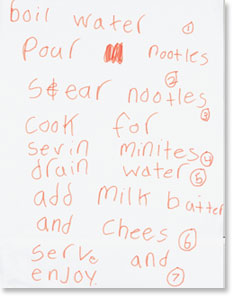 boil water ①
Pour nootles
②
Stear nootles
③
cook for
sevin minites ④
drain water ⑤
add milk baitter
and chees ⑥
serve and
enjoy. ⑦